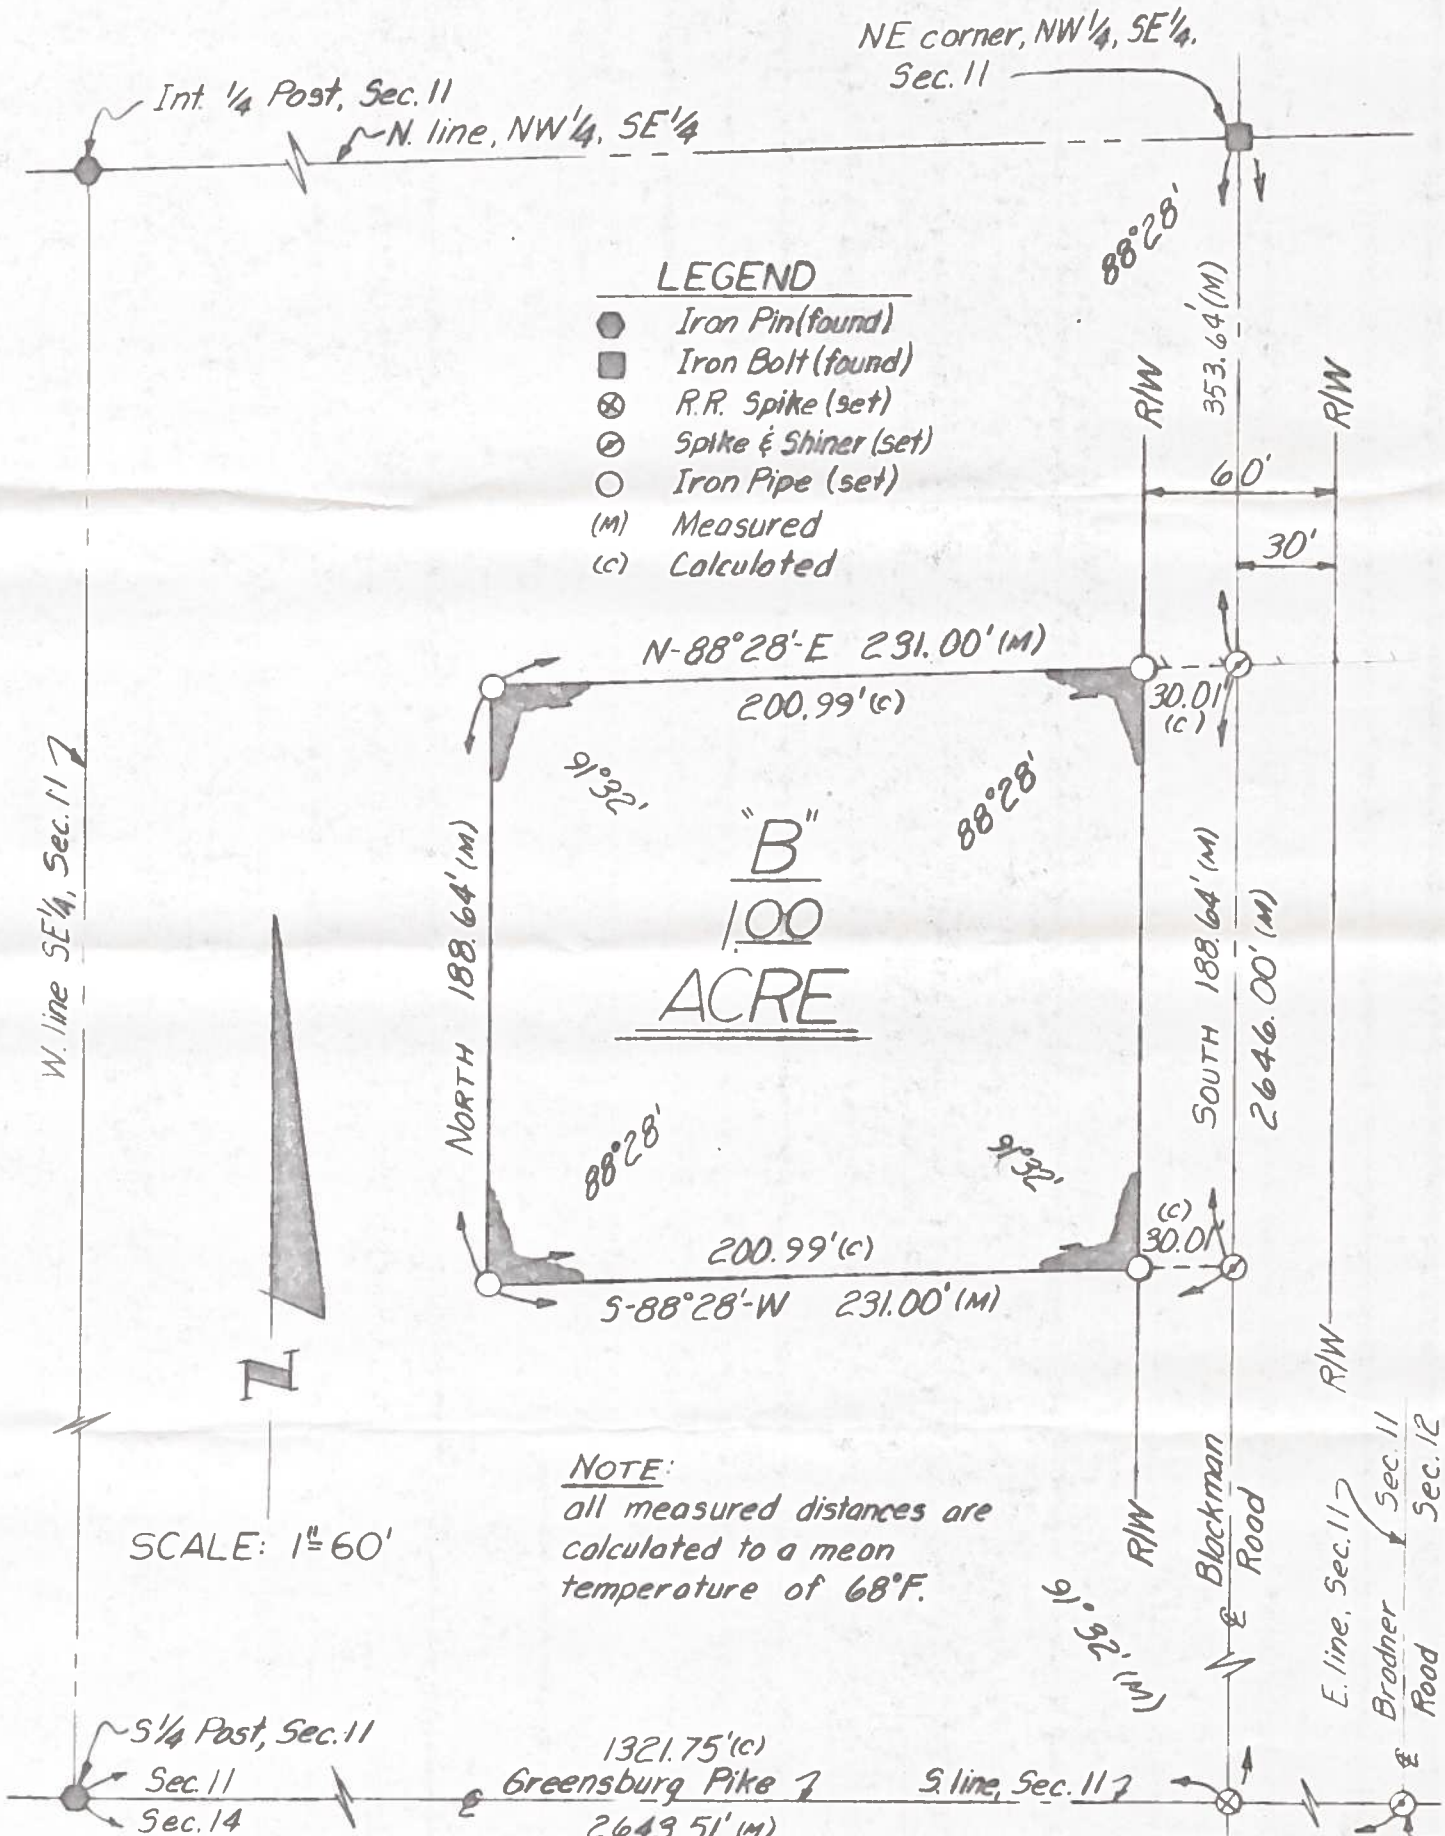 NE corner, NW 1/4, SE 1/4,
Sec. 11
Int. 1/4 Post, Sec. 11
N. line, NW 1/4, SE 1/4
88°28'
353.64'(M)
LEGEND
Iron Pin (found)
Iron Bolt (found)
R.R. Spike (set)
Spike & Shiner (set)
Iron Pipe (set)
(M) Measured
(C) Calculated
R/W
R/W
60'
30'
N-88°28'-E 231.00'(M)
200.99'(C)
30.01'
(C)
91°32'
88°28'
W. line SE 1/4, Sec. 11
NORTH 188.64'(M)
"B"
1.00
ACRE
SOUTH 188.64'(M)
2646.00'(M)
88°28'
91°32'
(C)
30.01'
200.99'(C)
S-88°28'-W 231.00'(M)
N
R/W
SCALE: 1"=60'
NOTE:
all measured distances are
calculated to a mean
temperature of 68°F.
R/W
℄ Blackman
Road
E. line, Sec. 11
Sec. 11
Sec. 12
℄ Brodner
Road
91°32'(M)
S 1/4 Post, Sec. 11
Sec. 11
Sec. 14
1321.75'(C)
℄ Greensburg Pike
S. line, Sec. 11
2643.51'(M)